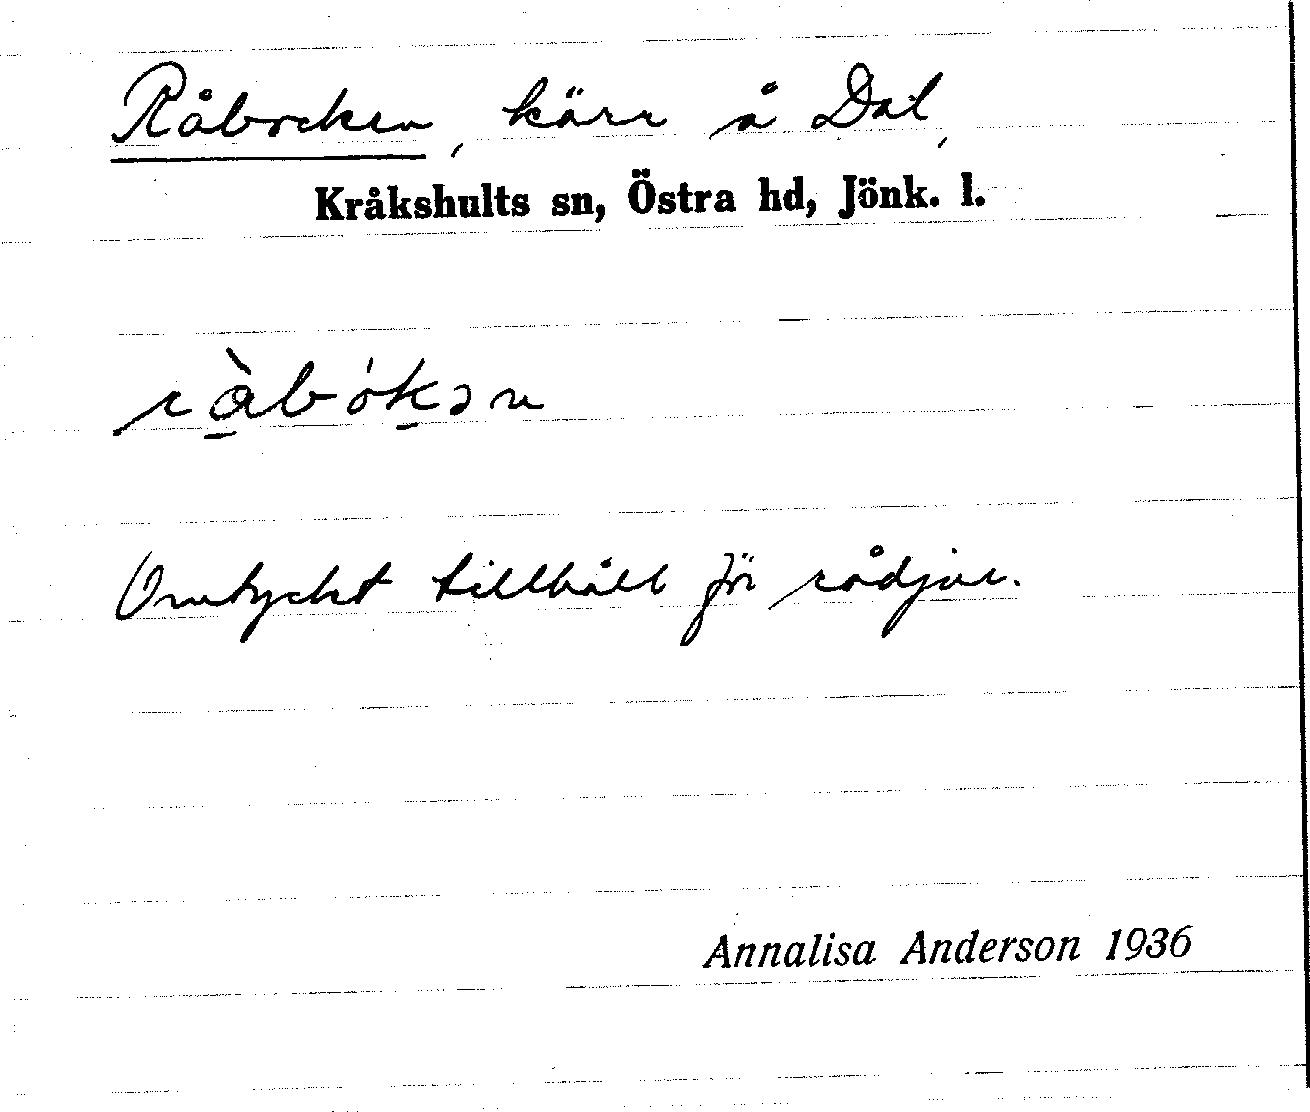 Råbocken, kärr å Dal,
Kråkshults sn, Östra hd, Jönk. l.
ràbókən
Omtyckt tillhåll för rådjur.
Annalisa Anderson 1936